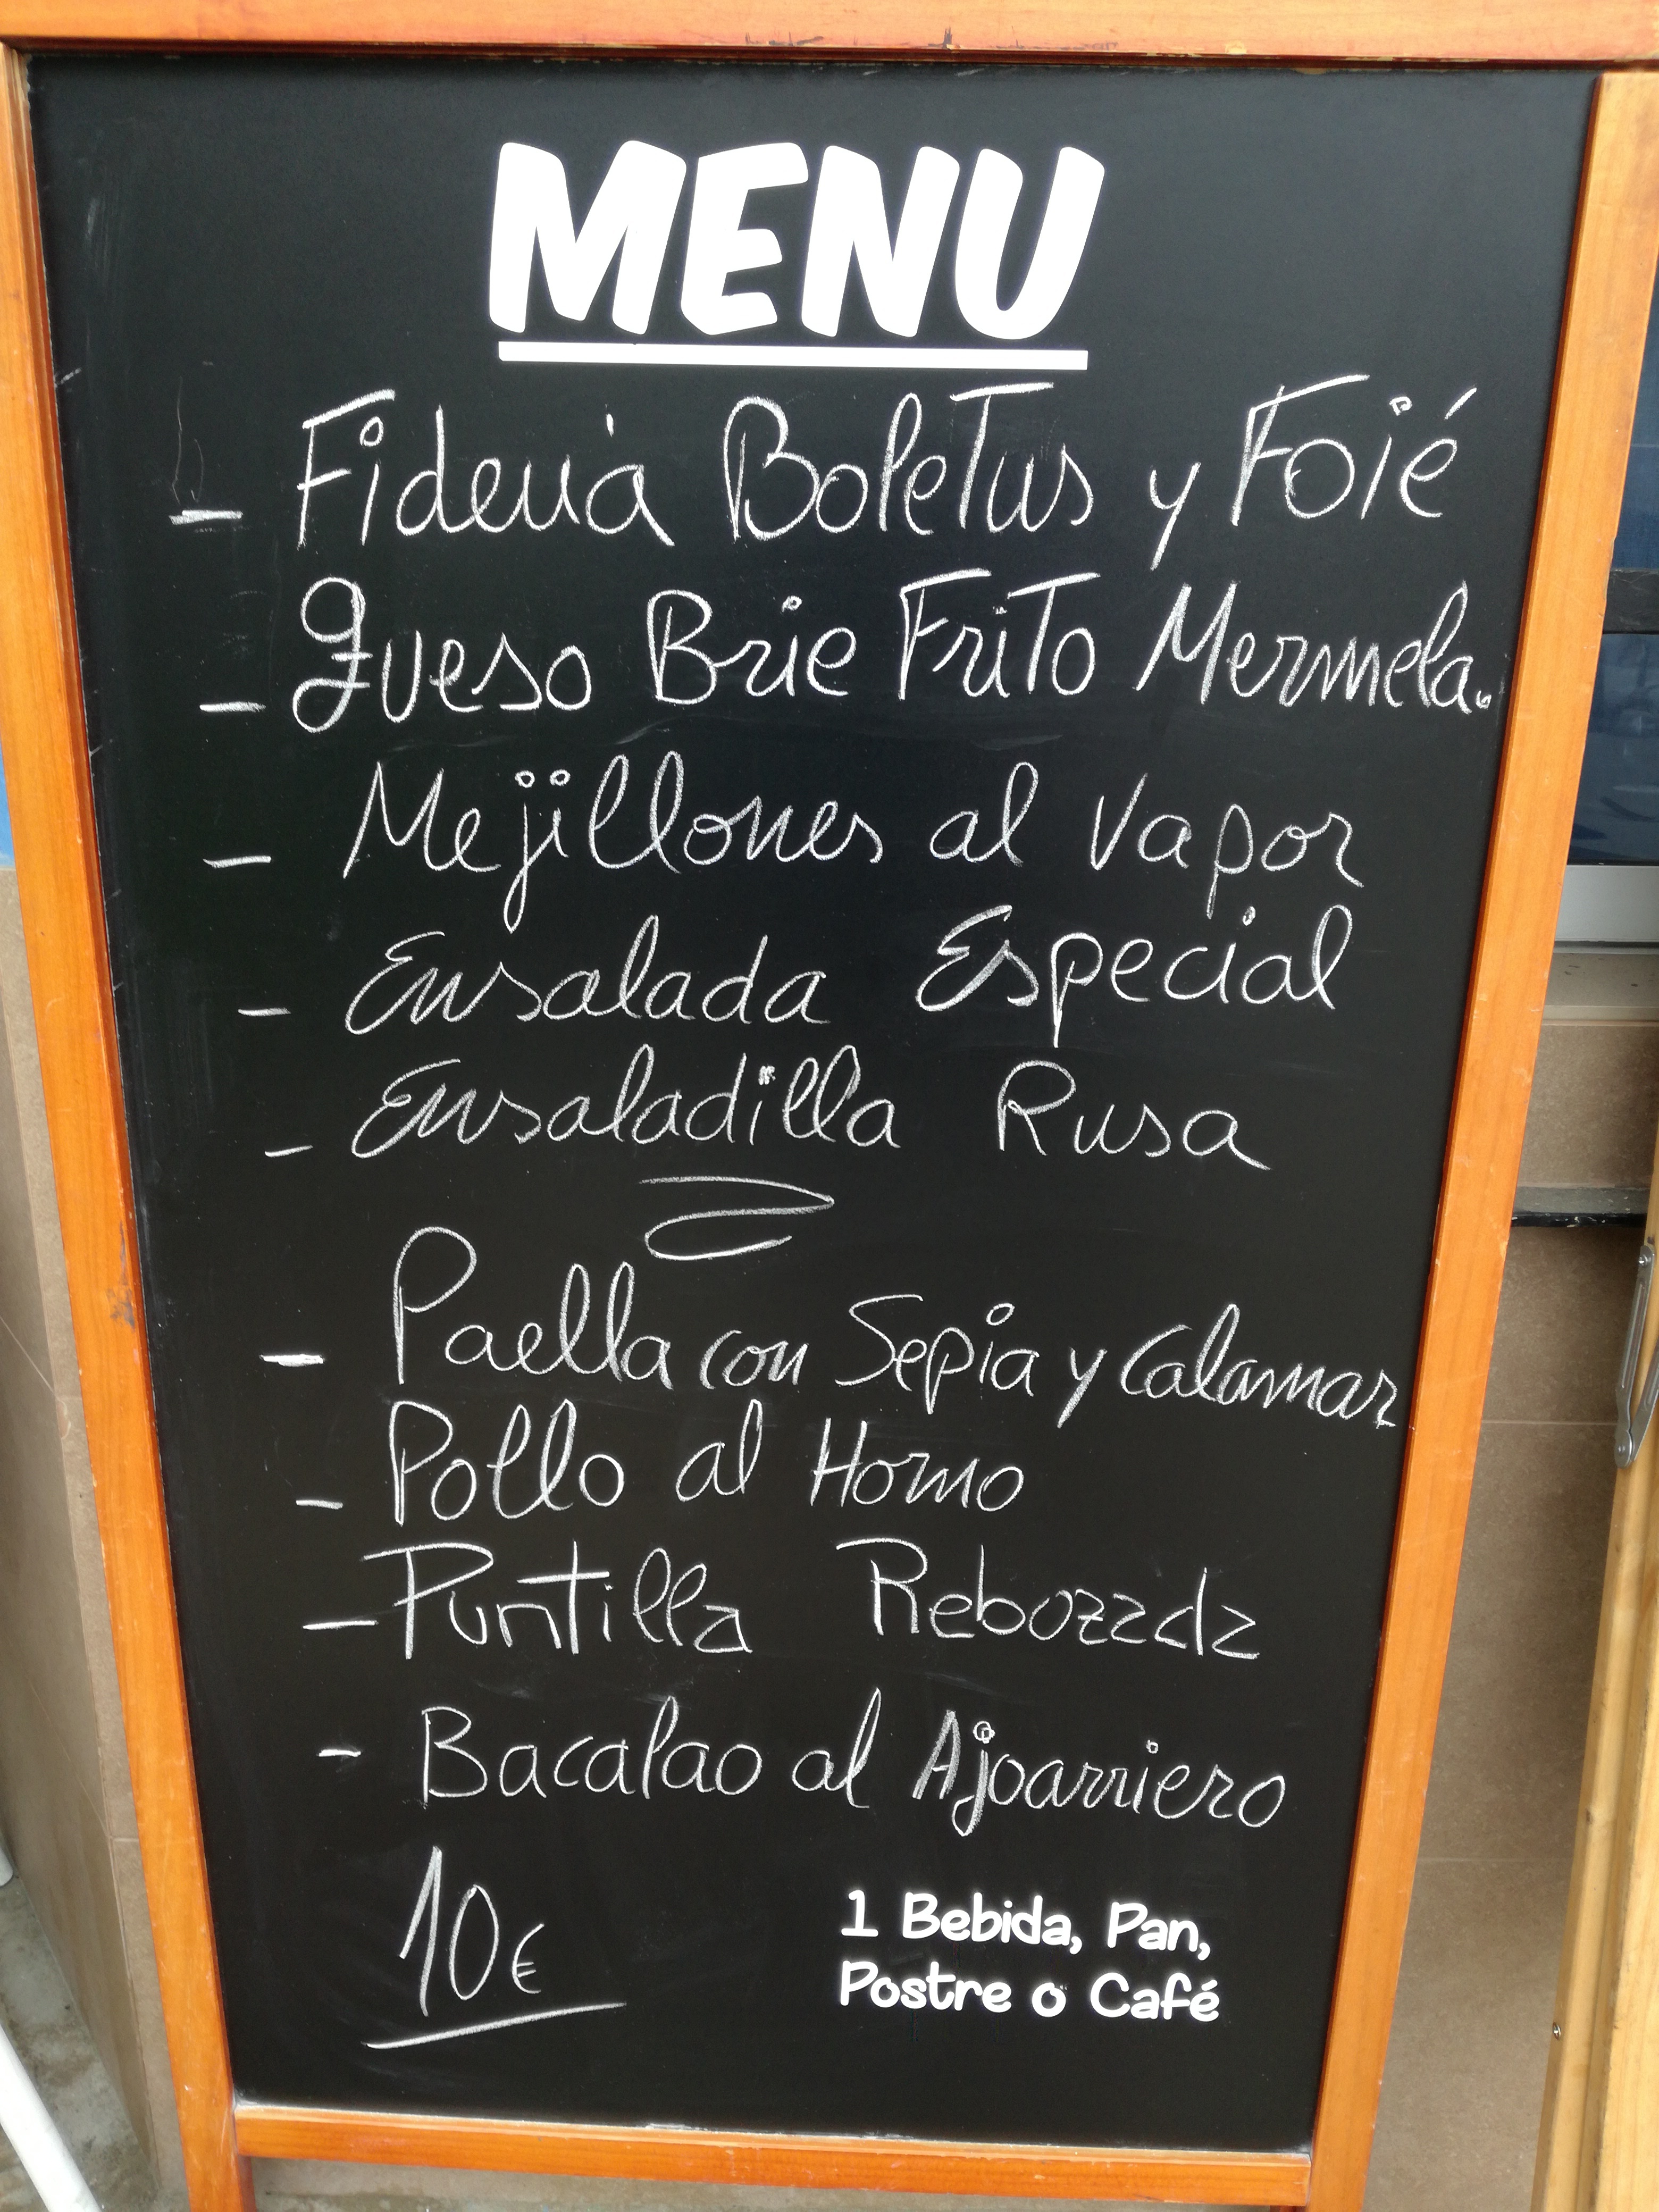 MENU
- Fideuá Boletus y Foié
- Queso Brie Frito Mermela.
- Mejillones al Vapor
- Ensalada Especial
- Ensaladilla Rusa
- Paella con Sepia y Calamar
- Pollo al Horno
- Puntilla Rebozada
- Bacalao al Ajoarriero
10€
1 Bebida, Pan,
Postre o Café